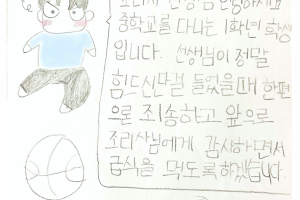 조리사 선생님 안녕하세요
중학교를 다니는 1학년 학생
입니다. 선생님이 정말
힘드신다걸 들었을때 한편
으론 죄송하고 앞으로
조리사님에게 감사하면서
급식을 먹도록하겠습니다.